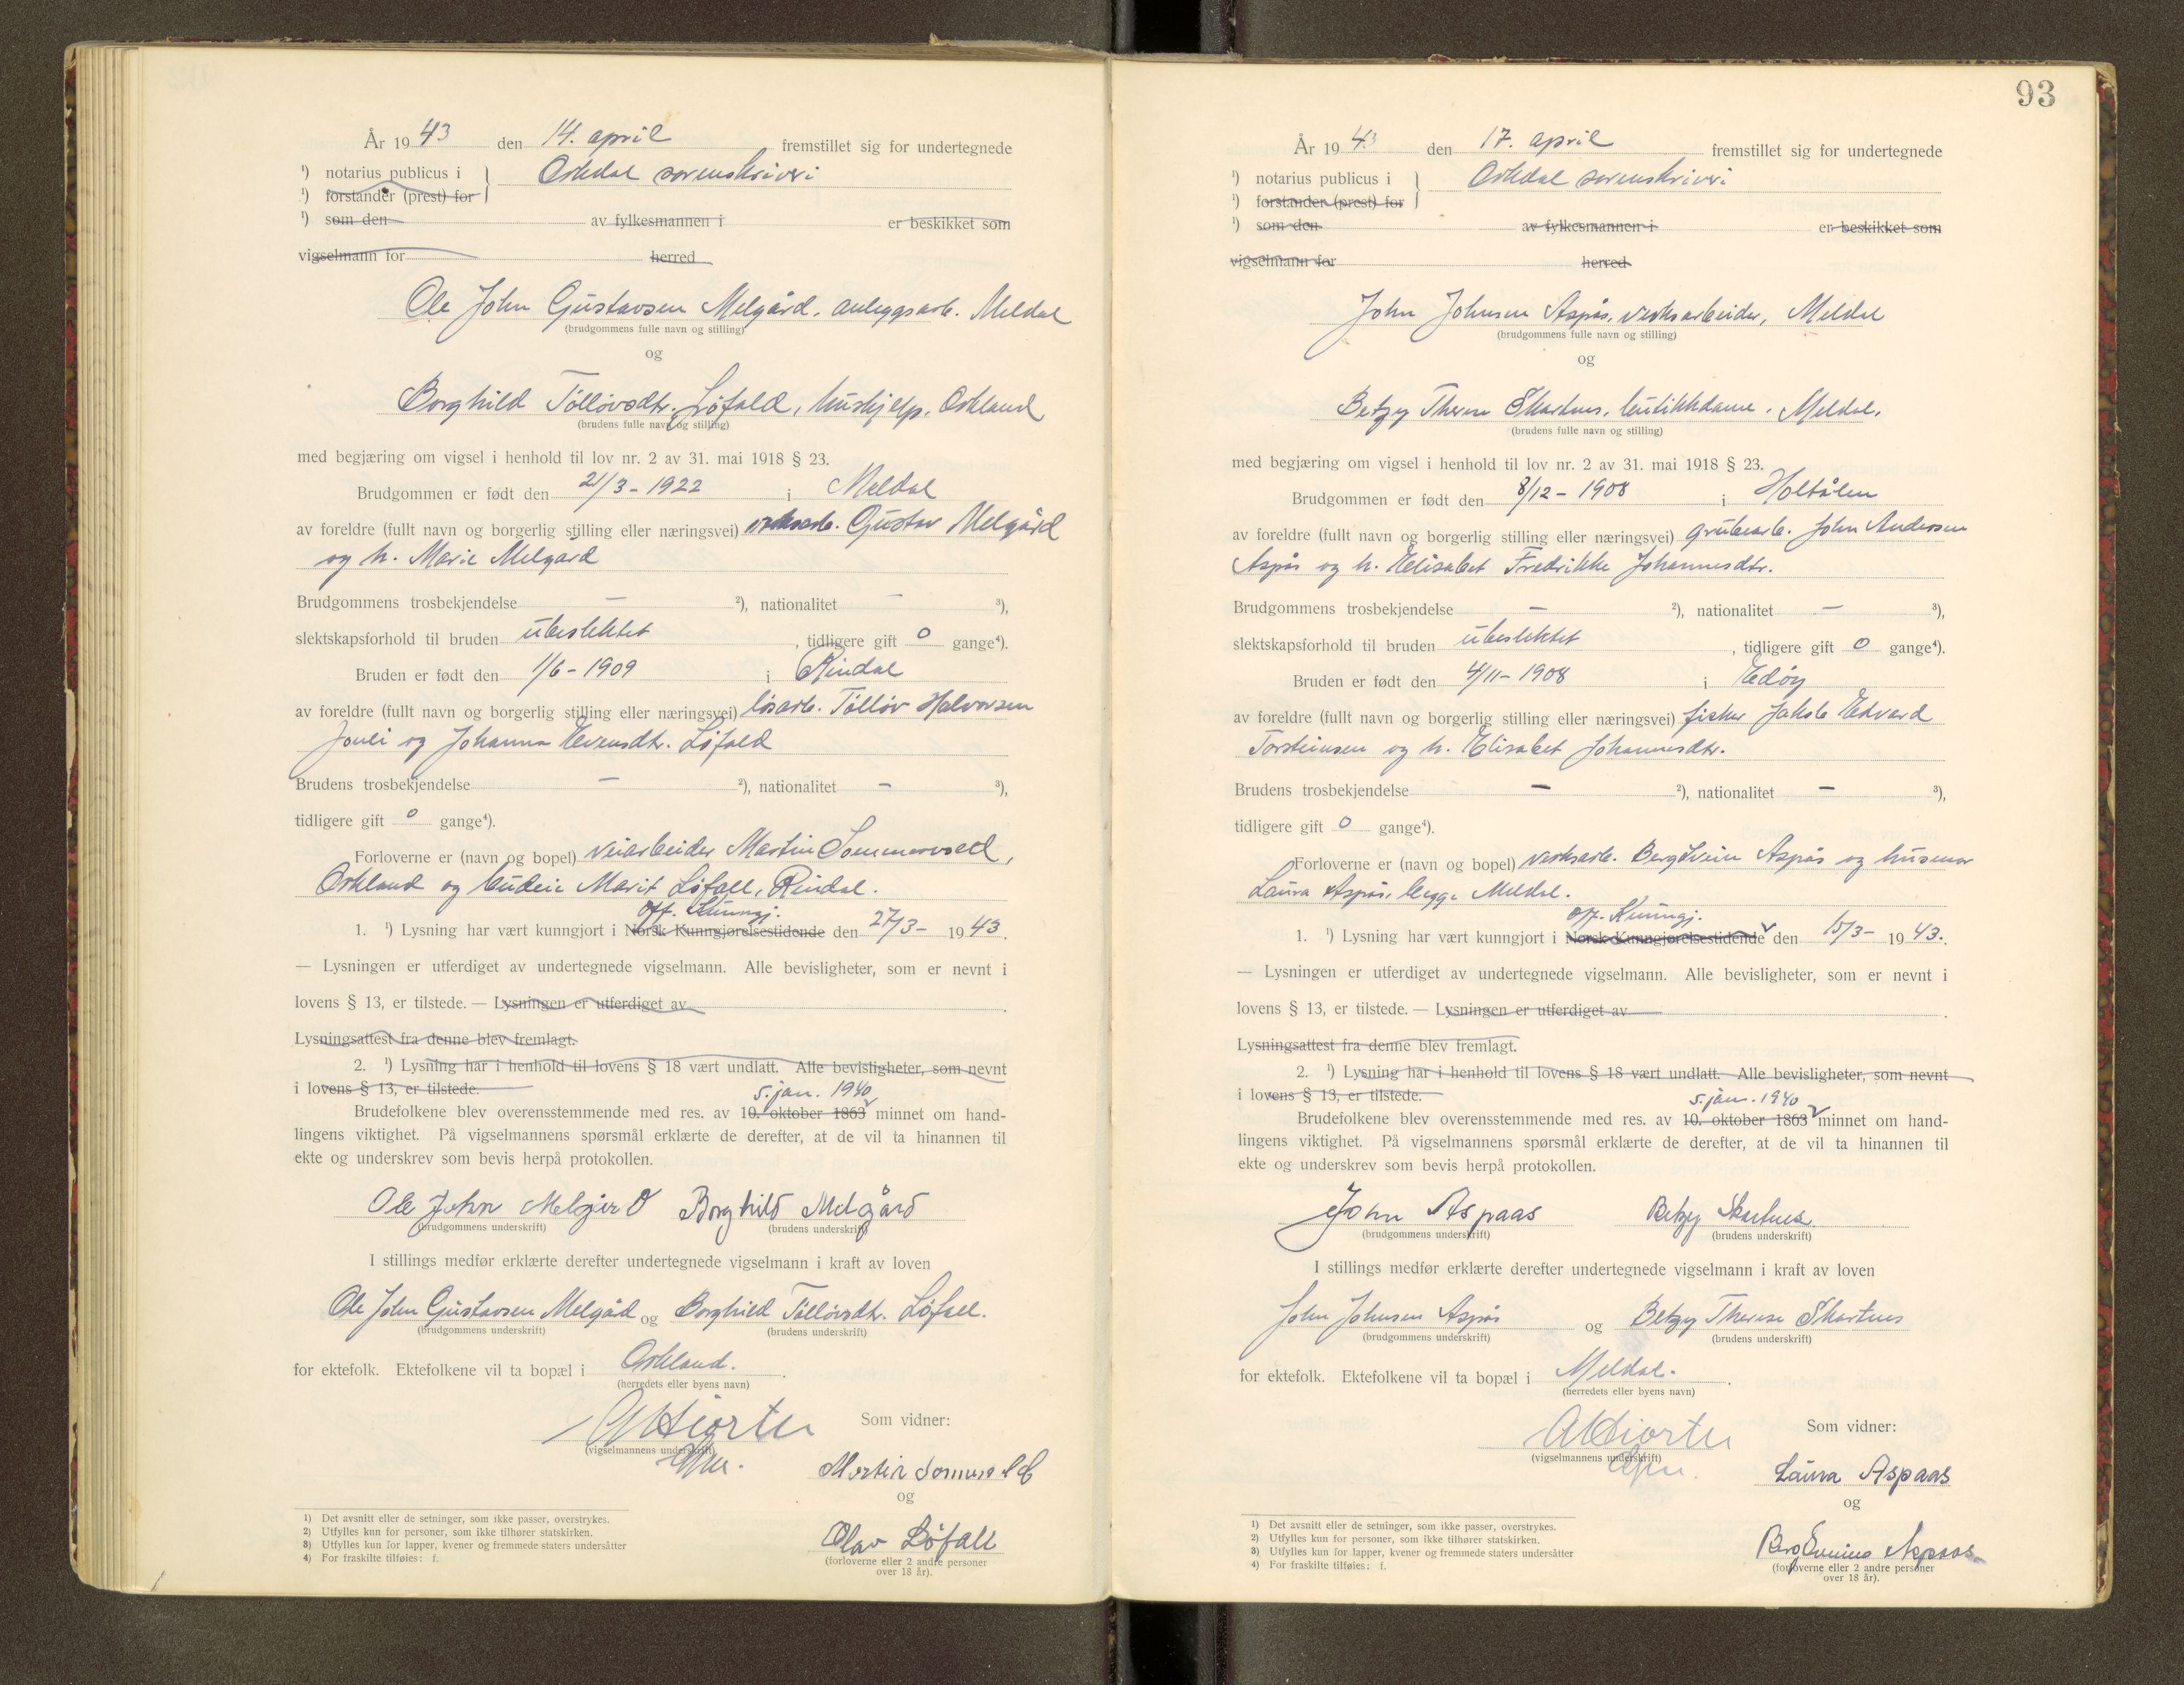 År 1943 den 14. april fremstillet sig for undertegnede
¹) notarius publicus i } Orkdal sorenskriveri
¹) forstander (prest) for
¹) som den av fylkesmannen i er beskikket som
vigselmann for herred
Ole John Gustavsen Melgård, anleggsarb. Meldal
(brudgommens fulle navn og stilling)
og
Borghild Tølløvsdtr. Løfald, hushjelp, Orkland
(brudens fulle navn og stilling)
med begjæring om vigsel i henhold til lov nr. 2 av 31. mai 1918 § 23.
Brudgommen er født den 21/3 - 1922 i Meldal
av foreldre (fullt navn og borgerlig stilling eller næringsvei) verksarb. Gustav Melgård
og h. Marie Melgård
Brudgommens trosbekjendelse — ²), nationalitet — ³),
slektskapsforhold til bruden ubeslektet, tidligere gift 0 gange⁴).
Bruden er født den 1/6 - 1909 i Rindal
av foreldre (fullt navn og borgerlig stilling eller næringsvei) løsarb. Tølløv Halvorsen
Jonli og Johanna Evensdtr. Løfald
Brudens trosbekjendelse — ²), nationalitet — ³),
tidligere gift 0 gange⁴).
Forloverne er (navn og bopel) veiarbeider Martin Sommervold,
Orkland og budeie Marit Løfall, Rindal.
off. Kunngj.
1. ¹) Lysning har vært kunngjort i Norsk Kunngjørelsestidende den 27/3 - 1943.
— Lysningen er utferdiget av undertegnede vigselmann. Alle bevisligheter, som er nevnt i
lovens § 13, er tilstede. — Lysningen er utferdiget av
Lysningsattest fra denne blev fremlagt.
2. ¹) Lysning har i henhold til lovens § 18 vært undlatt. Alle bevisligheter, som nevnt
i lovens § 13, er tilstede.
5. jan. 1940
Brudefolkene blev overensstemmende med res. av 10. oktober 1863 minnet om hand-
lingens viktighet. På vigselmannens spørsmål erklærte de derefter, at de vil ta hinannen til
ekte og underskrev som bevis herpå protokollen.
Ole John Melgård Borghild Melgård
(brudgommens underskrift) (brudens underskrift)
I stillings medfør erklærte derefter undertegnede vigselmann i kraft av loven
Ole John Gustavsen Melgåd og Borghild Tølløvsdtr. Løfall.
(brudgommens underskrift) (brudens underskrift)
for ektefolk. Ektefolkene vil ta bopæl i Orkland.
(herredets eller byens navn)
Hiorth Som vidner:
(vigselmannens underskrift)
Martin Sommervold
og
Olav Løfall
(forloverne eller 2 andre personer
over 18 år).
1) Det avsnitt eller de setninger, som ikke passer, overstrykes.
2) Utfylles kun for personer, som ikke tilhører statskirken.
3) Utfylles kun for lapper, kvener og fremmede staters undersåtter
4) For fraskilte tilføies: f.
93
År 1943 den 17. april fremstillet sig for undertegnede
¹) notarius publicus i } Orkdal sorenskriveri
¹) forstander (prest) for
¹) som den av fylkesmannen i er beskikket som
vigselmann for herred
John Johnsen Aspås, verksarbeider, Meldal
(brudgommens fulle navn og stilling)
og
Betzy Therese Skartnes, butikkdame, Meldal.
(brudens fulle navn og stilling)
med begjæring om vigsel i henhold til lov nr. 2 av 31. mai 1918 § 23.
Brudgommen er født den 8/12 - 1908 i Holtålen
av foreldre (fullt navn og borgerlig stilling eller næringsvei) grubearb. John Andersen
Aspås og h. Elisabet Fredrikke Johannesdtr.
Brudgommens trosbekjendelse — ²), nationalitet — ³),
slektskapsforhold til bruden ubeslektet, tidligere gift 0 gange⁴).
Bruden er født den 4/11 - 1908 i Edøy
av foreldre (fullt navn og borgerlig stilling eller næringsvei) fisker Jakob Edvard
Torsteinsen og h. Elisabet Johannesdtr.
Brudens trosbekjendelse — ²), nationalitet — ³),
tidligere gift 0 gange⁴).
Forloverne er (navn og bopel) verksarb. Bergsvein Aspås og husmor
Laura Aspås, begge Meldal.
off. Kunngj.
1. ¹) Lysning har vært kunngjort i Norsk Kunngjørelsestidende den 15/3 - 1943.
— Lysningen er utferdiget av undertegnede vigselmann. Alle bevisligheter, som er nevnt i
lovens § 13, er tilstede. — Lysningen er utferdiget av
Lysningsattest fra denne blev fremlagt.
2. ¹) Lysning har i henhold til lovens § 18 vært undlatt. Alle bevisligheter, som nevnt
i lovens § 13, er tilstede.
5. jan. 1940
Brudefolkene blev overensstemmende med res. av 10. oktober 1863 minnet om hand-
lingens viktighet. På vigselmannens spørsmål erklærte de derefter, at de vil ta hinannen til
ekte og underskrev som bevis herpå protokollen.
John Aspaas Betzy Skartnes
(brudgommens underskrift) (brudens underskrift)
I stillings medfør erklærte derefter undertegnede vigselmann i kraft av loven
John Johnsen Aspås og Betzy Therese Skartnes
(brudgommens underskrift) (brudens underskrift)
for ektefolk. Ektefolkene vil ta bopæl i Meldal.
(herredets eller byens navn)
Hiorth Som vidner:
(vigselmannens underskrift)
Laura Aspaas
og
Aspaas
(forloverne eller 2 andre personer
over 18 år).
1) Det avsnitt eller de setninger, som ikke passer, overstrykes.
2) Utfylles kun for personer, som ikke tilhører statskirken.
3) Utfylles kun for lapper, kvener og fremmede staters undersåtter
4) For fraskilte tilføies: f.